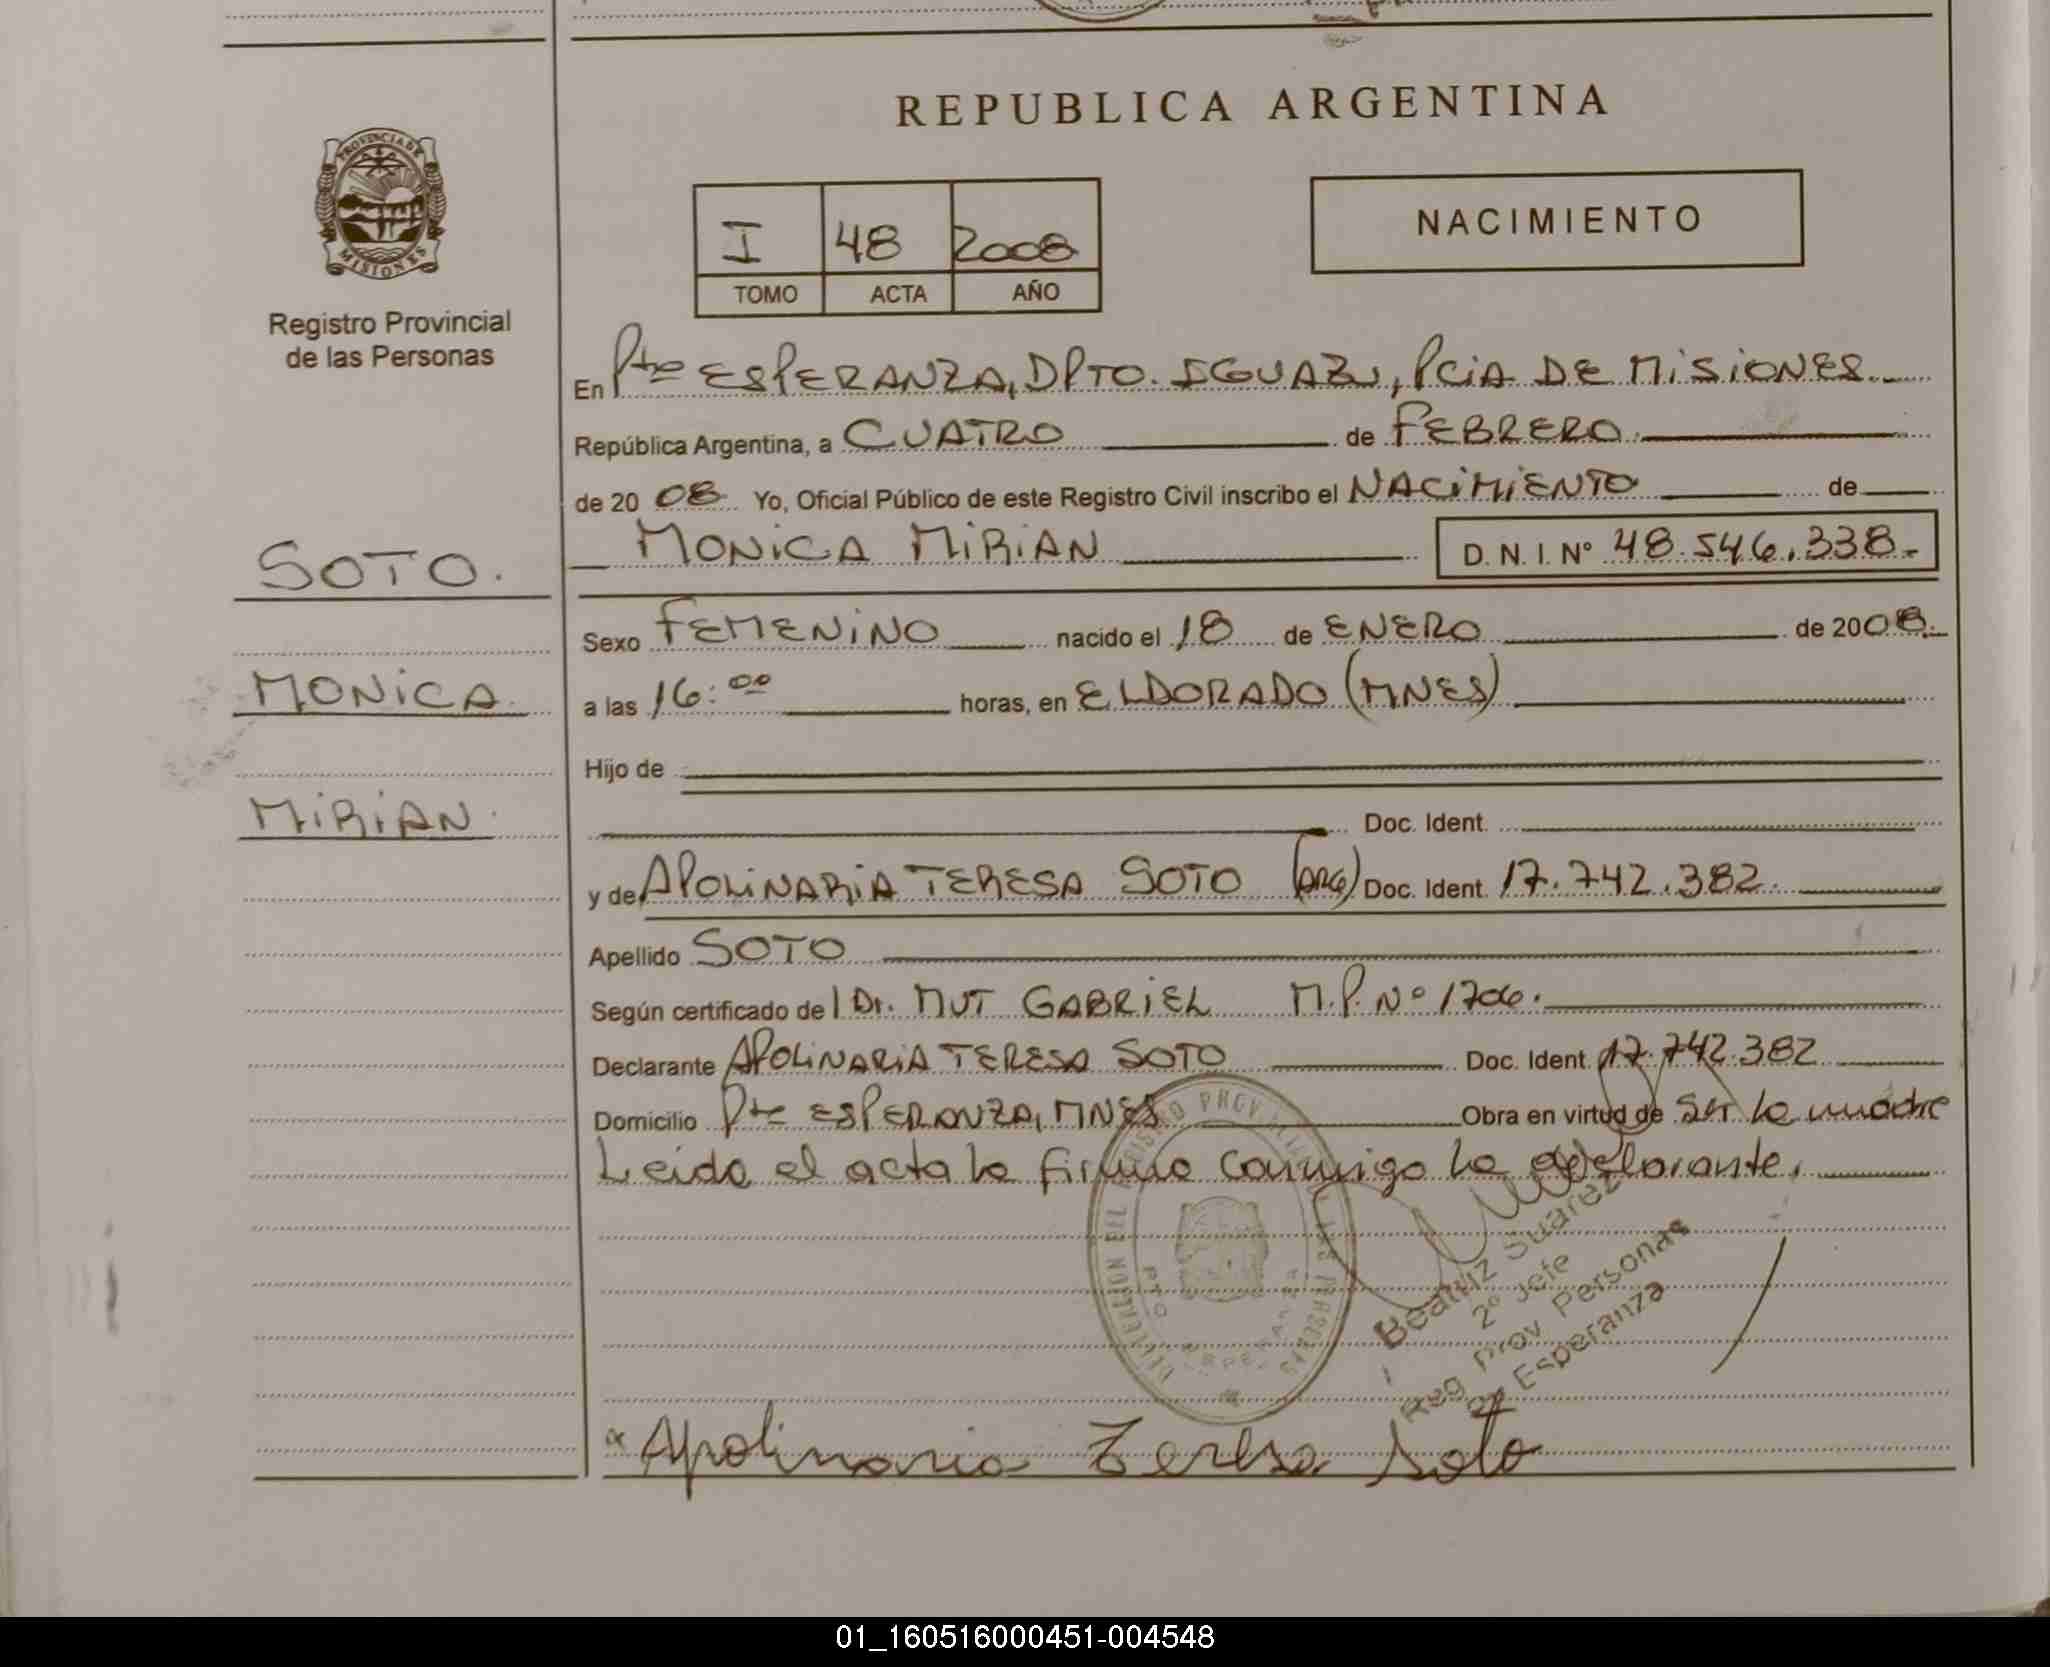 REPUBLICA ARGENTINA
PROVINCIA DE
MISIONES
Registro Provincial
de las Personas
I 48 2008
TOMO ACTA AÑO
NACIMIENTO
En Pto ESPERANZA, DPTO. IGUAZU, PCIA DE MISIONES.
República Argentina, a CUATRO de FEBRERO.
de 20 08 Yo, Oficial Público de este Registro Civil inscribo el NACIMIENTO de
MONICA MIRIAN D. N. I. Nº 48.546.338.-
SOTO.
MONICA.
MIRIAN.
Sexo FEMENINO nacido el 18 de ENERO de 2008.
a las 16:00 horas, en ELDORADO (MNES)
Hijo de
Doc. Ident.
y de APOLINARIA TERESA SOTO (ARG) Doc. Ident. 17.742.382.
Apellido SOTO
Según certificado de l Dr. MUT GABRIEL M.P. Nº 1706.
Declarante APOLINARIA TERESA SOTO Doc. Ident. 17.742.382
Domicilio Pto ESPERANZA, MNES Obra en virtud de ser la madre
Leida el acta la firma conmigo la declarante.
Beatriz Suarez
2º Jefe
Reg Prov Personas
Esperanza
Apolinaria Teresa Soto
01_160516000451-004548